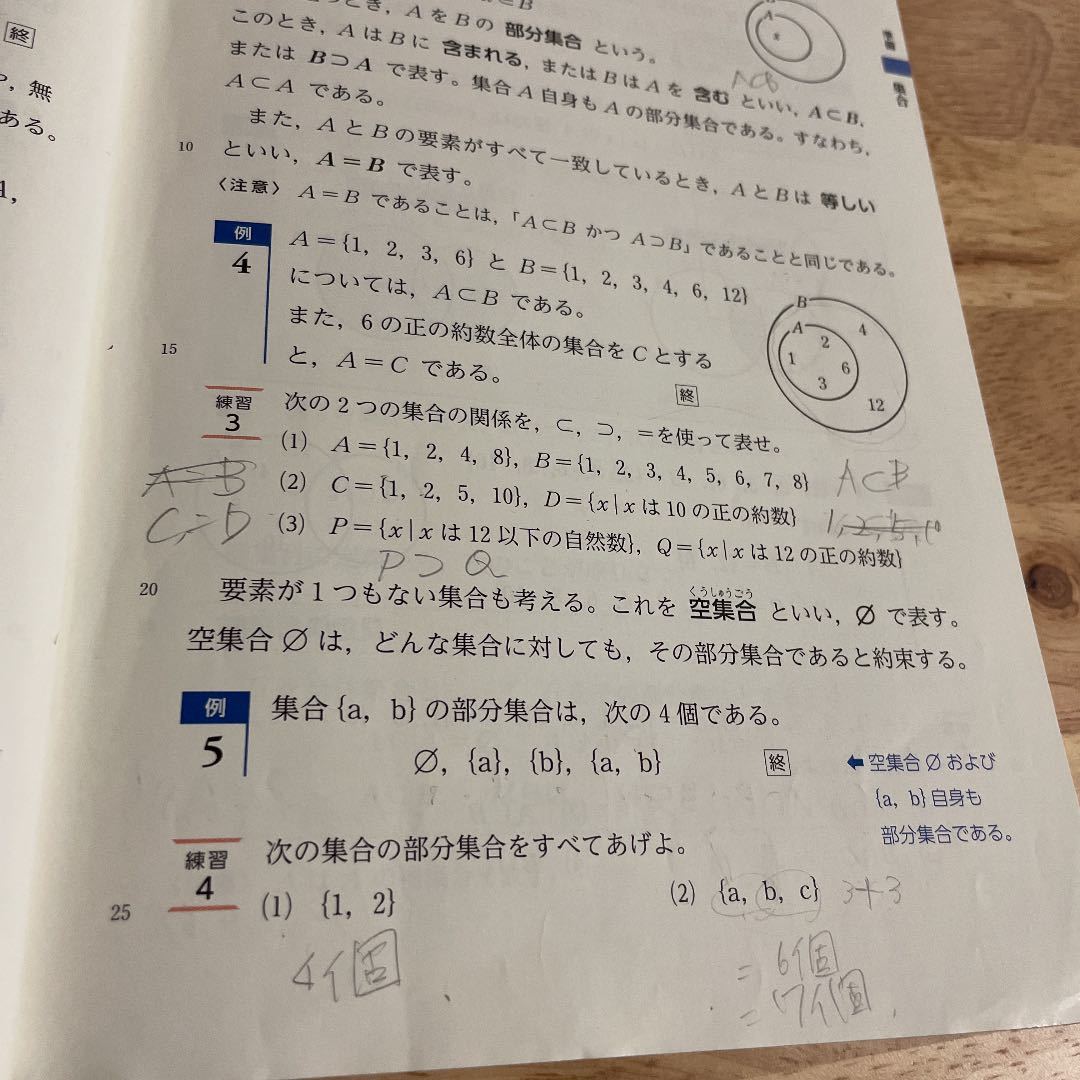 終
無
ある。
Aを Bの 部分集合 という。
このとき, A は B に 含まれる, または B は A を 含む といい, A⊂B,
または B⊃A で表す。集合 A 自身も A の部分集合である。すなわち,
A⊂A である。
また, A と B の要素がすべて一致しているとき, A と B は 等しい
10 といい, A=B で表す。
〈注意〉 A=B であることは,「A⊂B かつ A⊃B」であることと同じである。
集合
A
A⊂B
例 4
A={1, 2, 3, 6} と B={1, 2, 3, 4, 6, 12}
については, A⊂B である。
また, 6 の正の約数全体の集合を C とする
15 と, A=C である。
終
B
A
4
1 2
6
3
12
練習 3
次の 2 つの集合の関係を, ⊂, ⊃, =を使って表せ。
(1) A={1, 2, 4, 8}, B={1, 2, 3, 4, 5, 6, 7, 8} A⊂B
A=B
(2) C={1, 2, 5, 10}, D={x|x は 10 の正の約数} 1, 2, 5, 10
C=D
(3) P={x|x は 12 以下の自然数}, Q={x|x は 12 の正の約数}
P⊃Q
20 要素が 1 つもない集合も考える。これを 空集合 といい, ∅ で表す。
くうしゅうごう
空集合 ∅ は, どんな集合に対しても, その部分集合であると約束する。
例 5
集合 {a, b} の部分集合は, 次の 4 個である。
∅, {a}, {b}, {a, b}
終
← 空集合 ∅ および
{a, b} 自身も
部分集合である。
練習 4
次の集合の部分集合をすべてあげよ。
25 (1) {1, 2} (2) {a, b, c} 3+3
4個
= 6個
= 7個